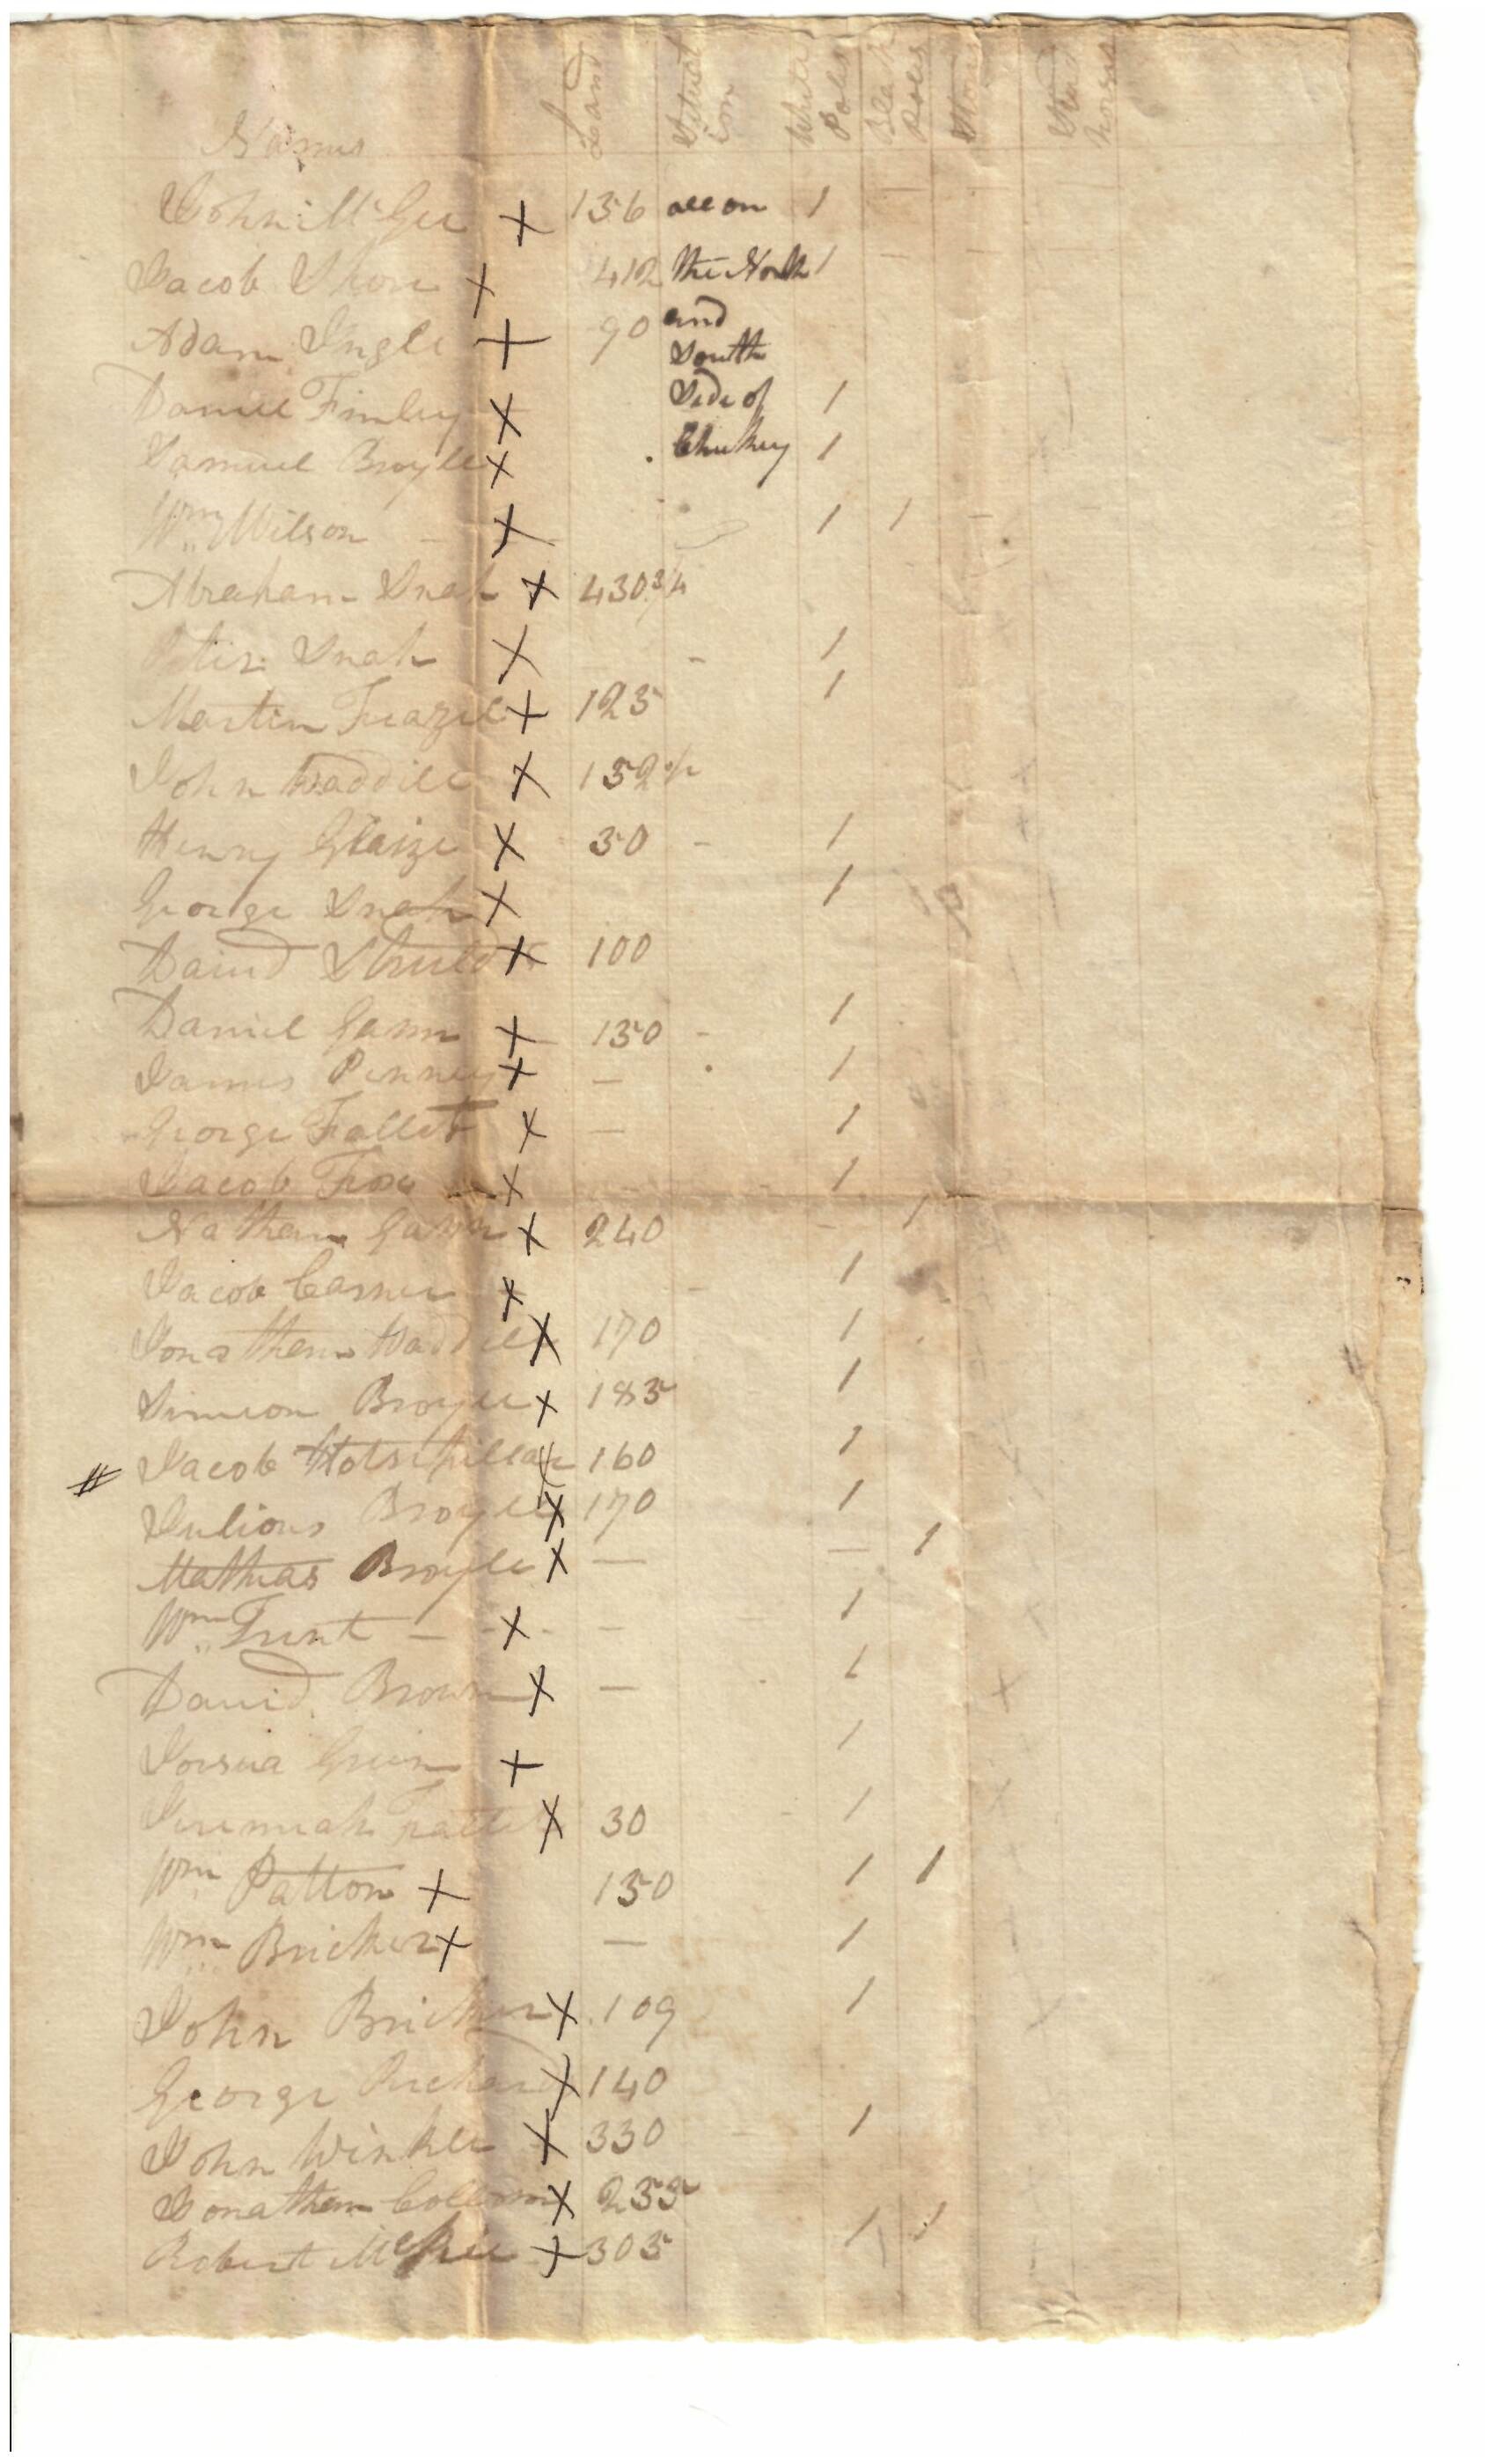 Names Land Situat ion White Poles Black Poles Stud horses
John McGee X 136 all on 1
Jacob X 412 the North 1
Adam Ingle X 90 and South
Daniel Finley X Side of 1
Samuel Broyle X Chukey 1
Wm Wilson - X 1 1 -
Abraham Snap X 430 3/4
Peter Snap X - 1
Martin Frazel X 125 1
John Waddill X 152 1/2
Henry Glaize X 50 - 1
George Snap X 1
David X 100
Daniel Gann X 150 - 1
James Penney X — 1
George Fallet X — 1
Jacob X 1
Nathan Gann X 240 - 1
Jacob Casner X - 1
Jonathan Waddill X 170 1
Simeon Broyle X 185 1
# Jacob X 160 1
Julious Broyle X 170 1
Mathias Broyle X — — 1
Wm Trent - X — 1
David Brown X — 1
Joesua Green X 1
Jeremiah X 30 1
Wm Patton X 150 1 1
Wm Bricker X — 1
John Bricker X 109 1
George X 140
John Winkle X 330 1
Jonathan X 255
Robert McKee X 305 1 1